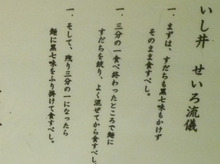 いし井 せいろ流儀
一、まずは、すだちも黒七味もかけず
そのまま食すべし。
一、三分の一食べ終わったところで麺に
すだちを絞り、よく混ぜてから食すべし。
一、そして、残り三分の一になったら
麺に黒七味をふり掛けて食すべし。